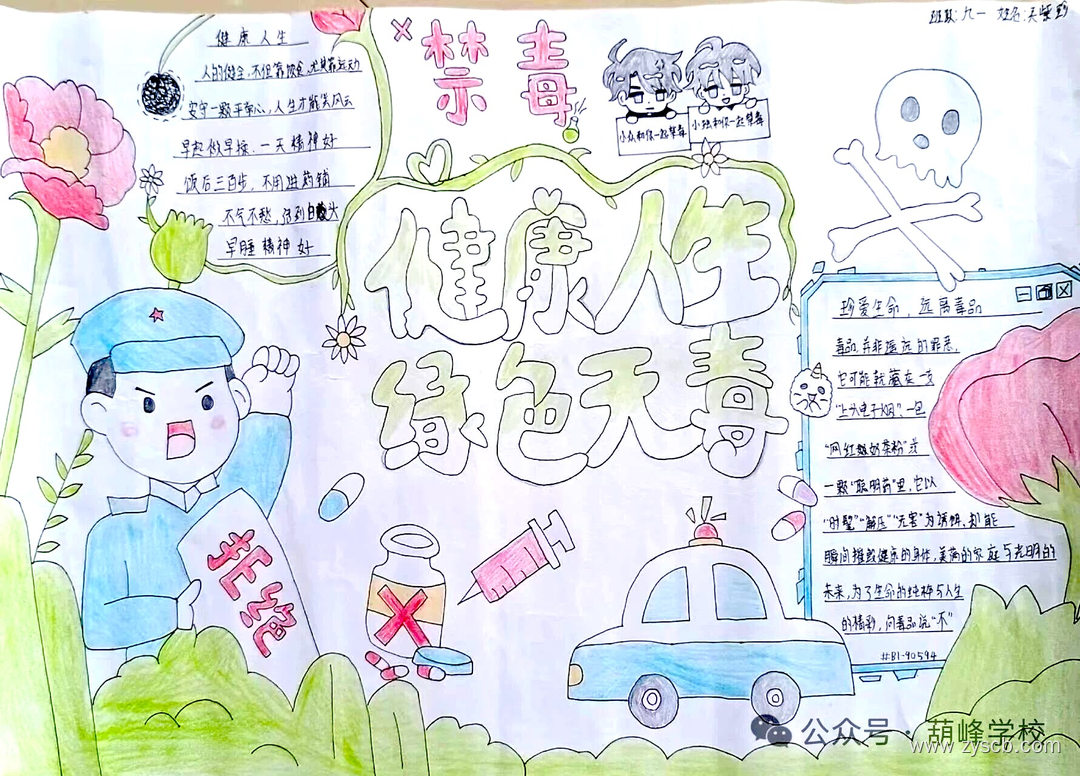 班级:九一 姓名:吴
健康人生
早起做早操,一天精神好
饭后三百步,不用进药铺
不气不愁,活到白头
早睡精神好
禁毒
小众和你一起禁毒
小孩和你一起禁毒
健康人生
绿色无毒
拒绝
珍爱生命,远离毒品
毒品并非遥远的罪恶,
它可能就藏在一支
“上头电子烟”、一包
“网红奶茶粉”或
一颗“聪明药”里,它以
“时髦”“解压”“无害”为诱饵,却能
瞬间摧毁健康的身体,美满的家庭与光明的
未来,为了生命的纯粹与人生
的精彩,向毒品说“不”
#B1-90594
公众号·葫峰学校
www.zyscb.com